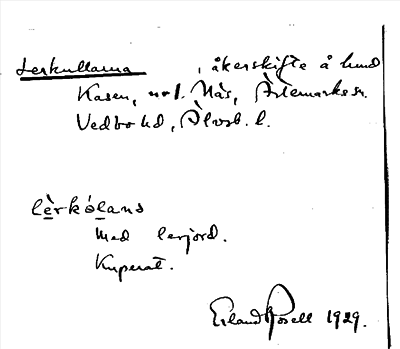 Lerkullarna, åkerskifte å hmd
Kasen, no 1. Näs, Ärtemarks sn.
Vedbo hd, Älvsb. l.
lèrkólanɒ
Med lerjord.
Kuperat.
Erland Rosell 1929.